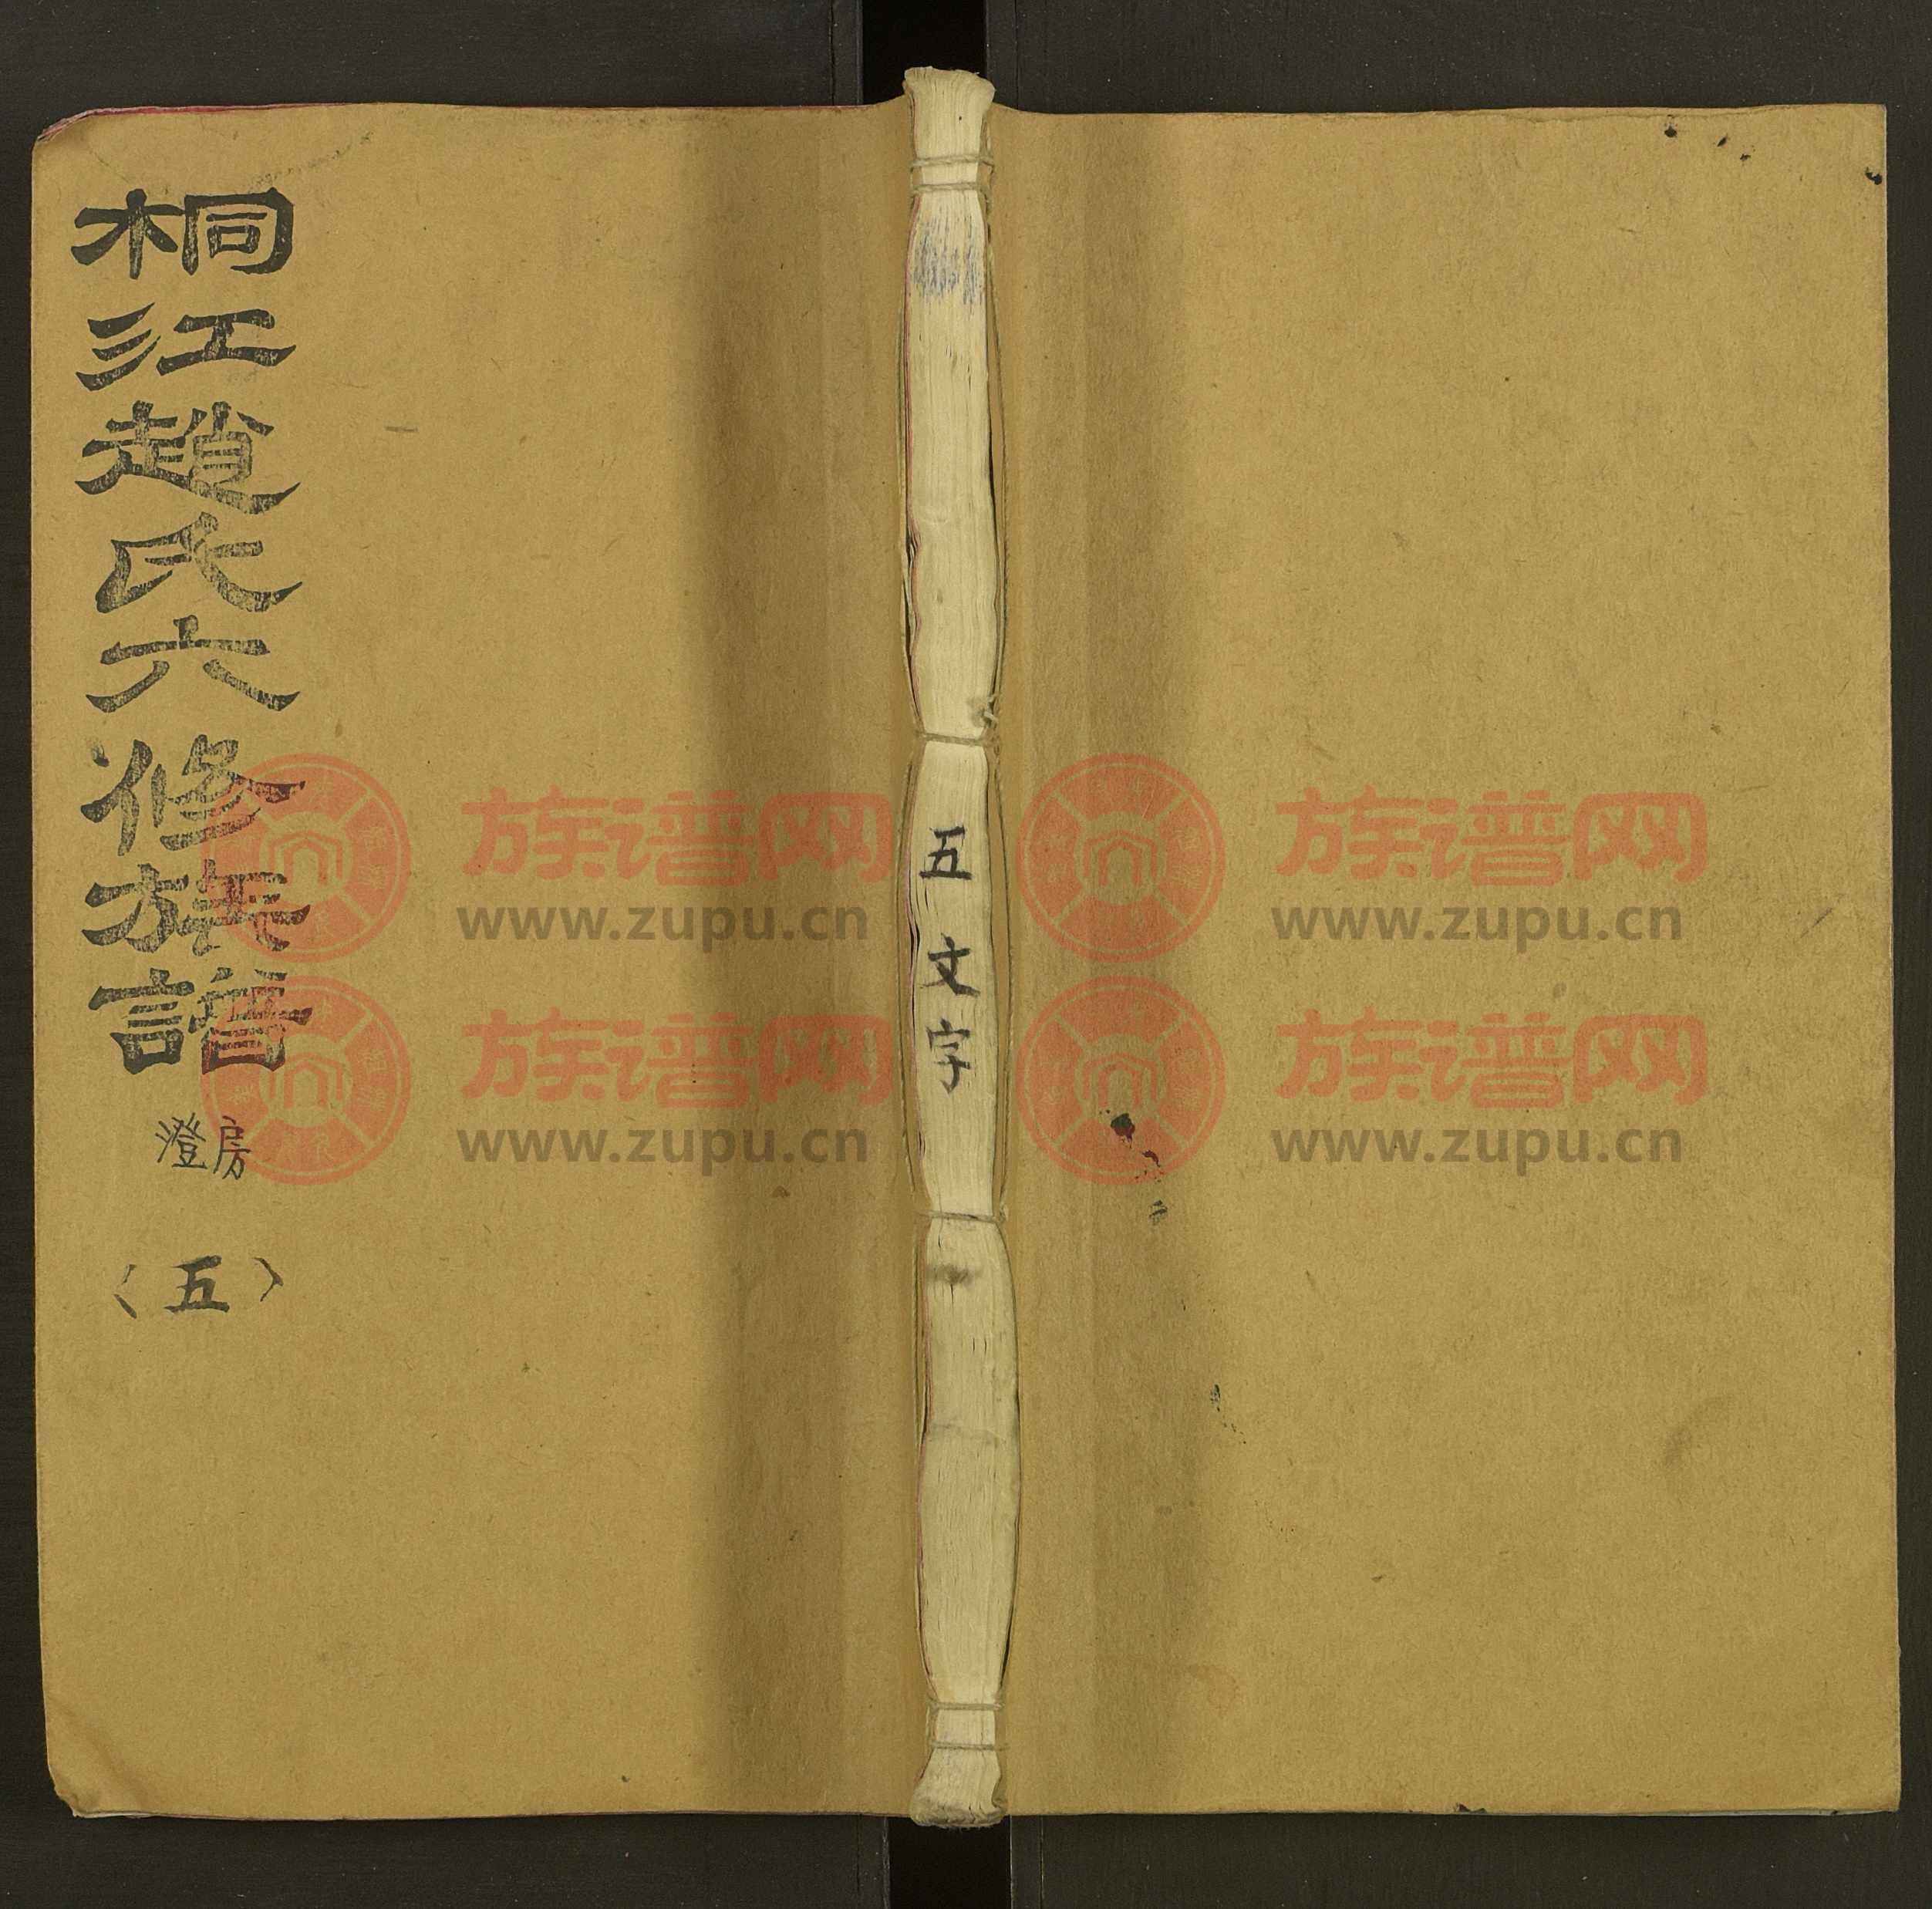 桐江趙氏六修族譜
澄房
〈五〉
五文字
族谱网
www.zupu.cn
族谱网
www.zupu.cn
族谱网
www.zupu.cn
族谱网
www.zupu.cn